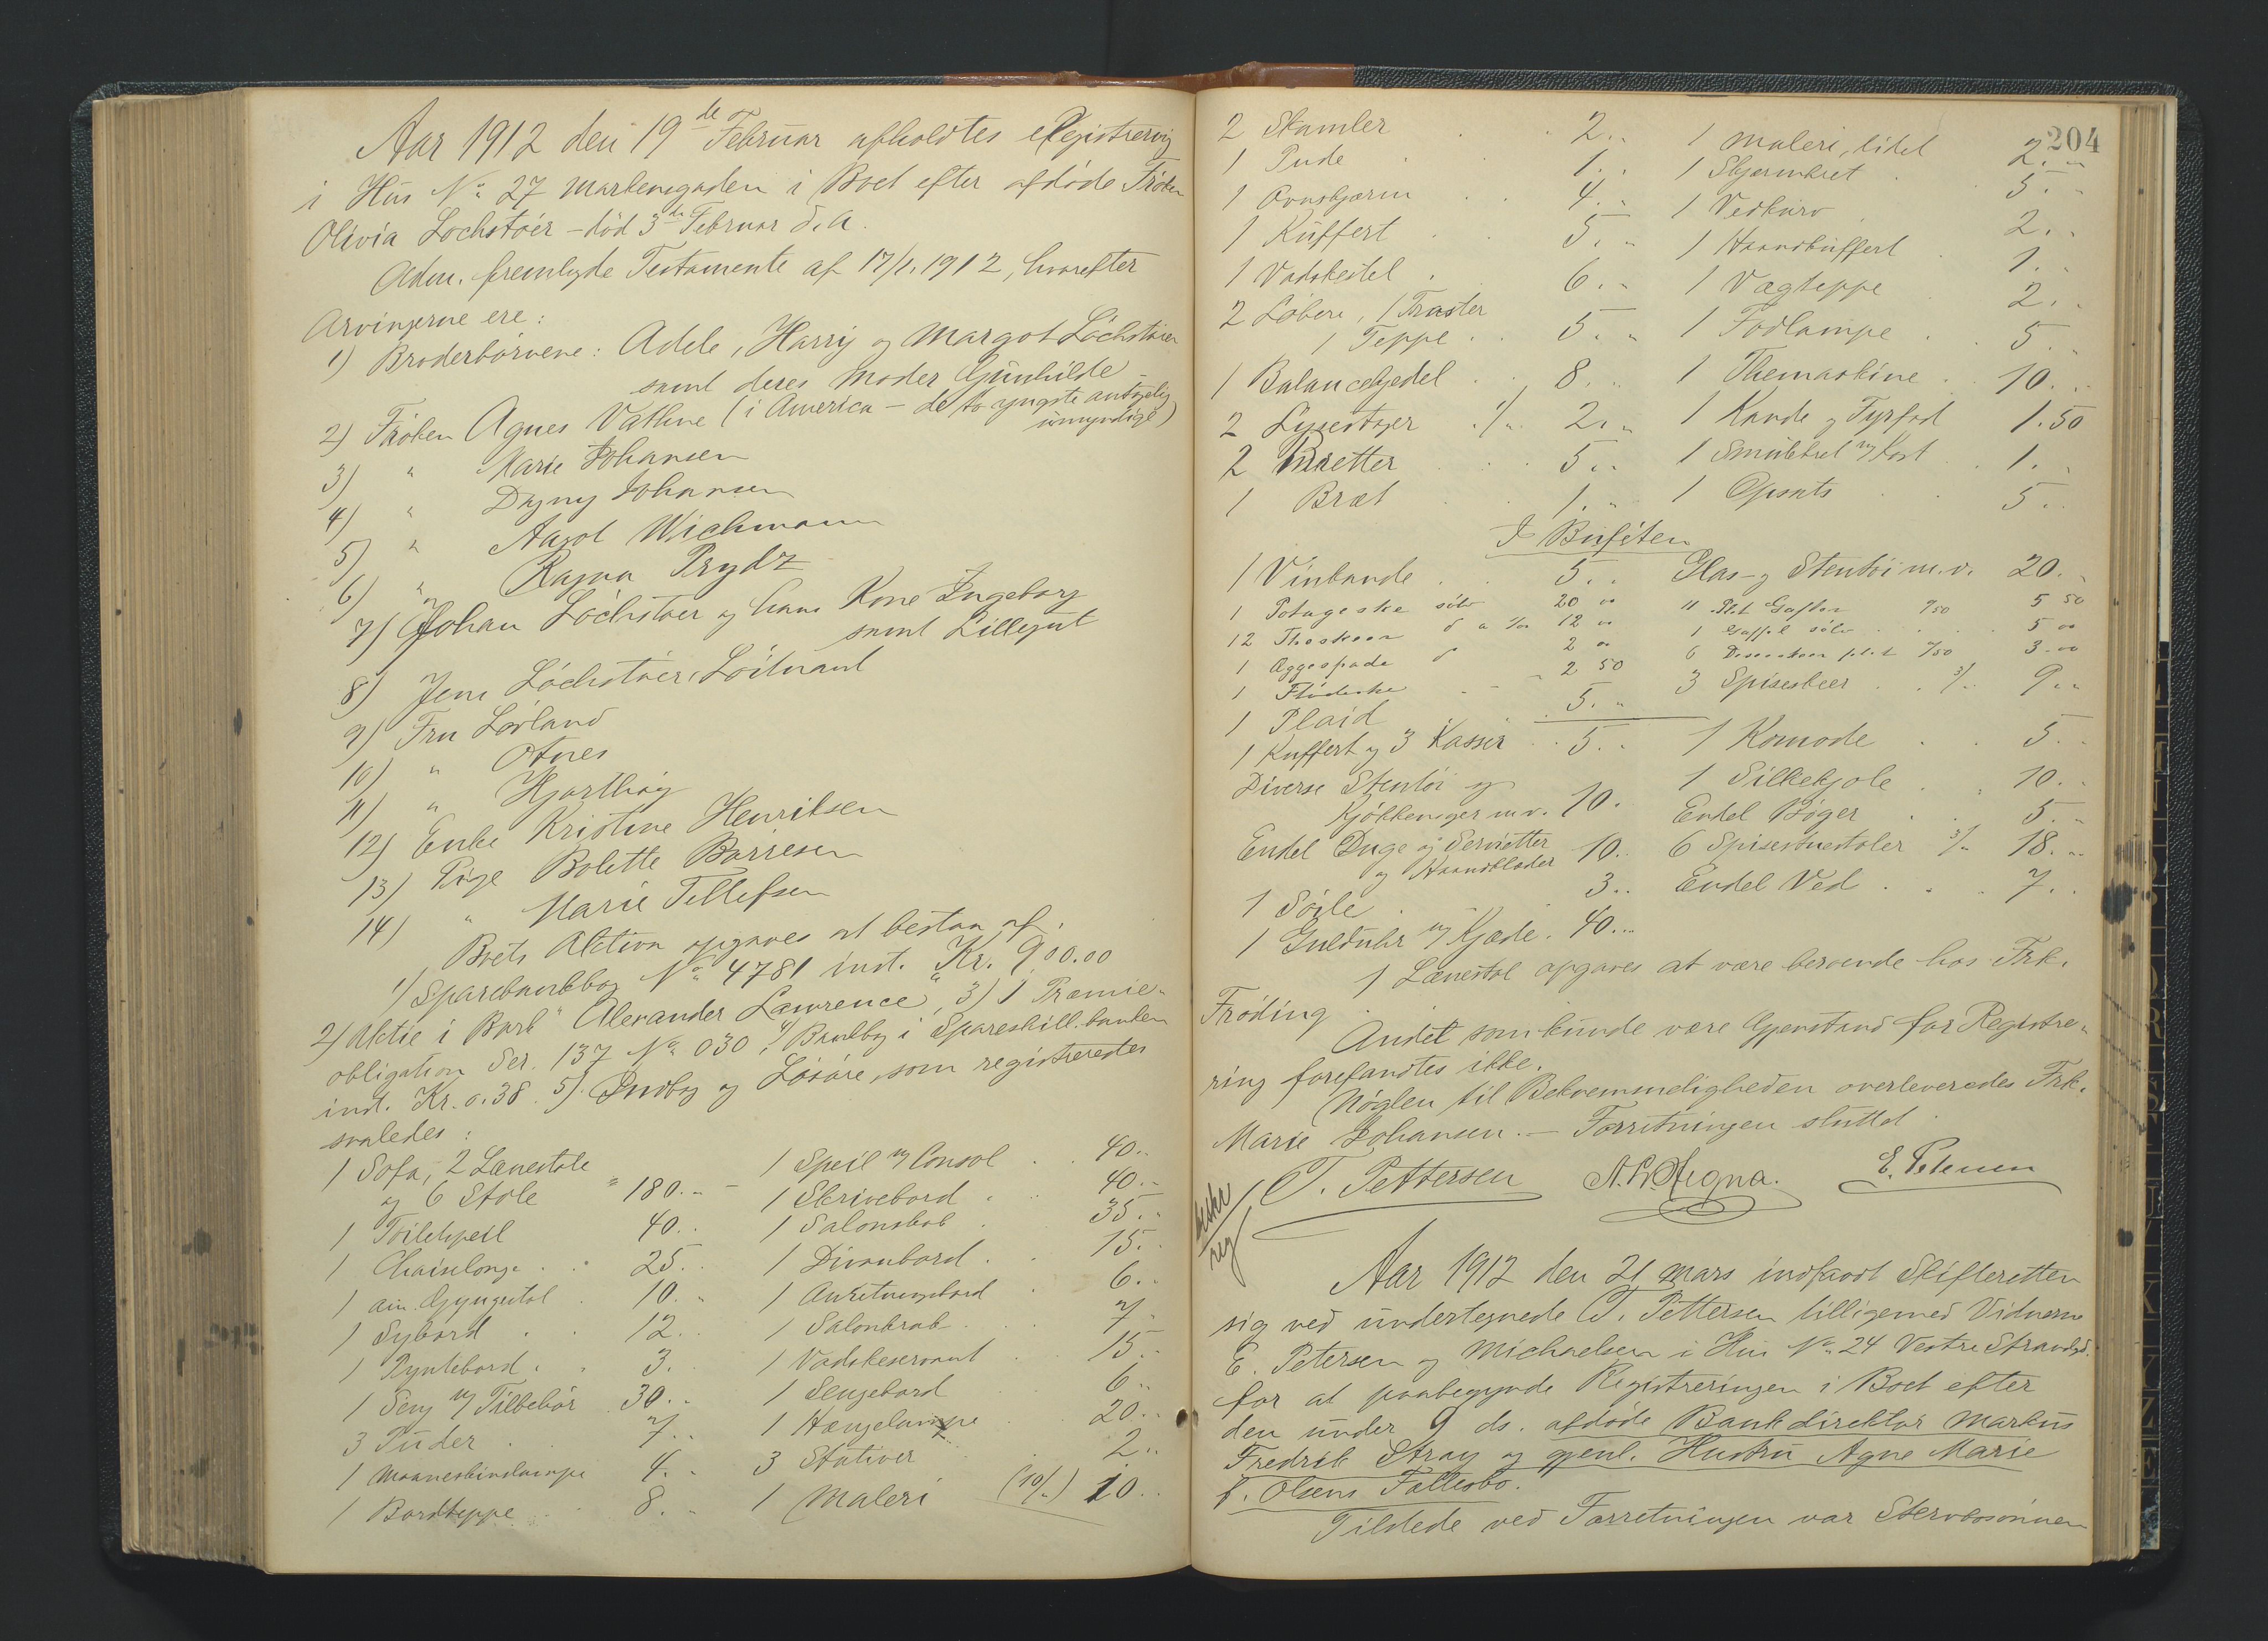 Aar 1912 den 19de Februar afholdtes Registrering
i Hus No 27 Markensgaden i Boet efter afdøde Frøken
Olivia Lochstöer - död 3de Februar d.A.
Adm. fremlagde Testamente af 17/1. 1912, hvorefter
Arvingerne ere:
1) Broderbörnene: Adele, Harry og Margot Löchstöer
samt deres Moder Gunhilde
2) Frøken Agnes Vathne (i America - de to yngste antagelig
umyndige)
3) " Marie Johansen
4) " Dagny Johansen
5) " Aagot Wichmann
6) " Ragna Prydz
7) Johan Löchstöer og hans Kone Ingeborg
samt Lillegut
8) Jens Löchstöer, Löitnant
9) Fru Lövland
10) " Otnes
11) " Hjorthöy
12) Enke Kristine Henriksen
13) Pige Bolette Borresen
14) " Marie Tellefsen
Boets Aktiva opgaves at bestaa af:
1) Sparebankbog No 4781 ind. Kr. 900.00
2) Aktie i Bark "Alexander Lawrence", 3) 1 Præmie-
obligation Ser. 137 No 030, 4) Bankbog i Spareskill.banken
ind. Kr. 0.38. 5). Indbo og Lösöre, som registreredes
saaledes:
1 Sofa, 2 Lænestole
og 6 Stole " 180.. 1 Speil m/ Consol . . 40..
1 Toiletspeil 40.. 1 Skrivebord . . 40..
1 Chaiselonge . . 25.. 1 Salonskab . 35..
1 am. Gyngestol . 10.. 1 Divanbord . . 15..
1 Sybord . . 12.. 1 Anretningsbord . 6..
1 Pyntebord . . 3.. 1 Salonkrak . . 7..
1 Seng m/ Tilbehör . 30.. 1 Vadskeservant . 15..
3 Puder . . 7.. 1 Sengebord . 6..
1 Maaneskinslampe 4.. 1 Hængelampe . 20..
1 Bordteppe . 8.. 3 Stativer . 2..
1 Maleri (10/..) 10..
204
2 Skamler . . 2.. 1 Maleri, lidet 2..
1 Pude . . 1.. 1 Skjermbret . 5..
1 Ovnskjærm . . 4.. 1 Vedkurv . 2..
1 Kuffert . . 5.. 1 Haandkuffert . 1..
1 Vadskestel . 6.. 1 Vægteppe . 2..
2 Löbere, 1 Traster
1 Teppe . . 5.. 1 Fodlampe . . 5..
1 Balancekjedel . . 8.. 1 Themaskine . 10..
2 Lysestager . 1/.. 2.. 1 Kande og Fyrfad 1.50
2 Bretter . . 5.. 1 Smulebret m/ Kost . 1..
1 Bræt . 1.. 1 Opsats . 5..
I Buffeten
1 Vinkande . . 5.. Glas- og Stentöi m.v. 20..
1 Potageske sölv 20 00 11 Plet Gafler 0/50 5 50
12 Theskeer do a 1/00 12 00 1 Gaffel sölv . . 5 00
1 Æggespade do 2 00 6 Dessertskeer plet 0/50 3.00
1 Flödeske . . 2 50 3 Spiseskeer . . 3/.. 9..
1 Plaid 5..
1 Kuffert og 3 Kasser . . 5.. 1 Komode . . 5..
Diverse Stentöi og
Kjökkensager m.v. 10. 1 Silkekjole . . 10..
Endel Bøger . . 5..
Endel Duge og Servietter
og Haandklæder 10.. 6 Spisestuestoler 3/.. 18..
1 Söile . . 3.. Endel Ved . . . 7..
1 Gulduhr m/ Kjæde . 40...
1 Lænestol opgaves at være beroende hos Frk.
Fröding.
Andet som kunde være Gjenstand for Registre-
ring forefandtes ikke.
Nöglen til Bekvemmeligheden overleveredes Frk.
Marie Johansen. - Forretningen sluttet.
T. Pettersen E. Petersen
beskr
reg
Aar 1912 den 21 Mars indfandt Skifteretten
sig ved undertegnede T. Pettersen tilligemed Vidnerne
E. Petersen og Michaelsen i Hus No 24 Vestre Strandgd.
for at paabegynde Registreringen i Boet efter
den under 9 ds. afdøde Bankdirektör Markus
Fredrik Stray og gjenl. Hustru Agne Marie
f. Olsens Fællesbo.
Tilstede ved Forretningen var Stervbosönnen